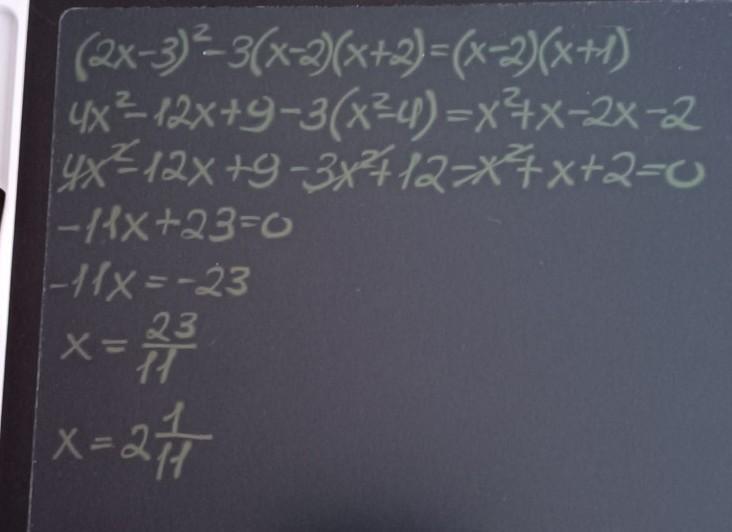 (2x-3)²-3(x-2)(x+2)=(x-2)(x+1)
4x²-12x+9-3(x²-4)=x²+x-2x-2
4x²-12x+9-3x²+12-x²+x+2=0
-11x+23=0
-11x=-23
x=23/11
x=2 1/11